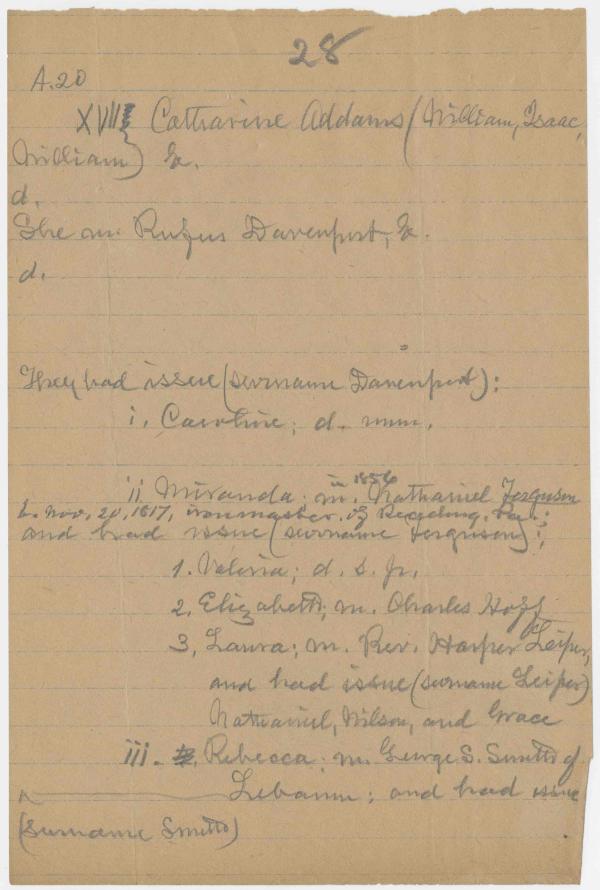 28
A.20
XVIII Catharine Addams (William, Isaac,
William) &.
d.
She m. Rufus Davenport, &.
d.
They had issue (surname Davenport):
i. Caroline; d. unm.
ii Miranda; m. in 1856 Nathaniel Ferguson
b. Nov. 20, 1817, ironmaster, of Reading, Pa.;
and had issue (surname Ferguson);
1. Valeria; d. s. p.
2. Elizabeth; m. Charles Hoff
3, Laura; m. Rev. Harper Leiper,
and had issue (surname Leiper)
Nathaniel, Wilson, and Grace
iii. Rebecca; m. George S. Smith of
Lebanon; and had issue
(surname Smith)